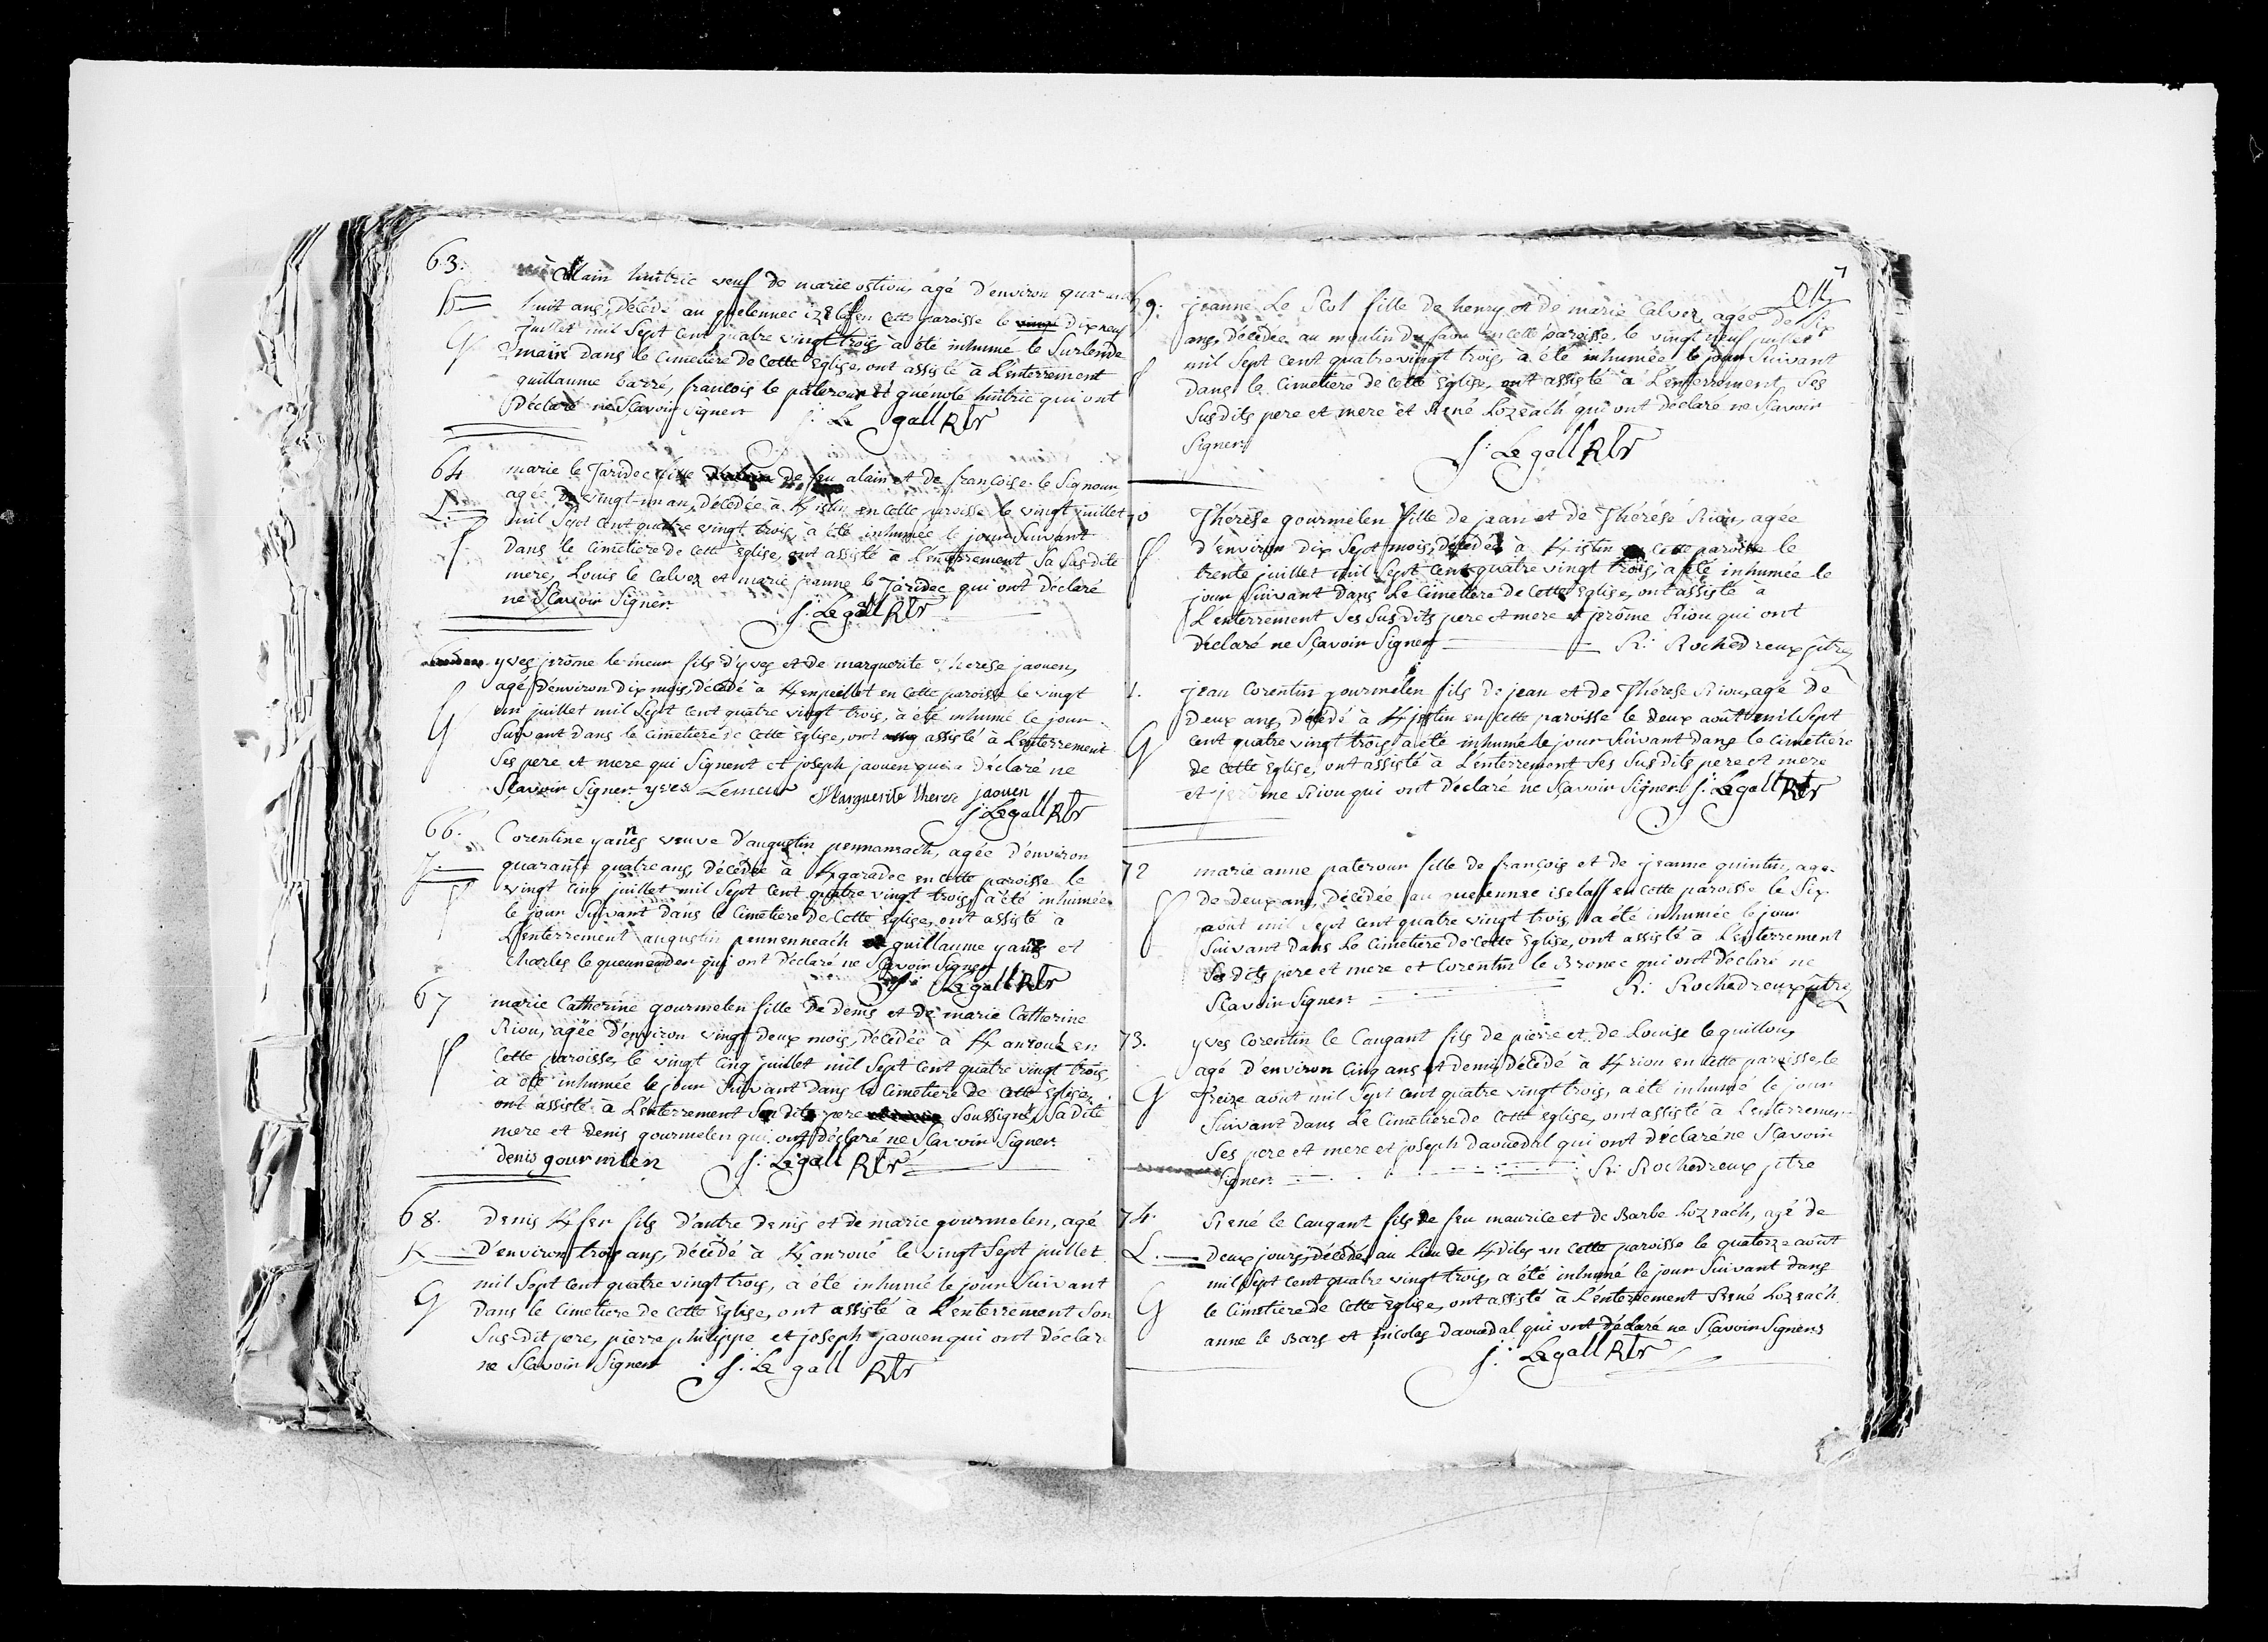 63.
Alain hürtric veuf de marie ostiou, agé d'environ quarante
huit ans, Décédé au quelennec izelaff en cette paroisse le dix neuf
juillet mil Sept cent quatre vingt trois, à été inhumé le Surlende
main dans le Cimetiere de cette Eglise, ont assisté à L'enterrement
guillaume barré, francois le paterour et guénolé hürtric qui ont
Déclaré ne Scavoir Signer J: Le gall Rtr
64
marie le Jaridec fille de feu alain et de françoise le Signour,
agée de vingt-un an, Décédée à Kistin en cette paroisse le vingt juillet
L.
mil Sept cent quatre vingt trois, à été inhumée le jour Suivant
f
Dans le Cimetiere de cette Eglise, ont assisté à L'enterrement Sa Susdite
mere, Louis le Calvez et marie jeanne le Jaridec qui ont déclaré
ne Scavoir Signer. J: Le gall Rtr
65
yves jerôme le meur fils d'yves et de marguerite Therese jaouen,
agé d'environ Dix mois, Décédé à en cette paroisse le vingt
un juillet mil Sept cent quatre vingt trois, à été inhumé le jour
G
Suivant dans le Cimetiere de cette Eglise, ont assisté à L'enterrement
Ses pere et mere qui Signent et joseph jaouen qui a Déclaré ne
Scavoir Signer. yves Lemeur Marguerite therese jaouen
J: Le gall Rtr
66.
Corentine yanes veuve d'augustin pennanneach, agée d'environ
quarante quatre ans, Décédée à Kgaradec en cette paroisse le
vingt cinq juillet mil Sept cent quatre vingt trois, à été inhumée
f
le jour Suivant dans le Cimetiere de Cette Eglise, ont assisté à
L'enterrement augustin pennenneach guillaume yanes et
Charles le queuneuder qui ont Déclaré ne Scavoir Signer
J: Le gall Rtr
67
marie Catherine gourmelen fille de denis et de marie Catherine
Riou, agée d'environ vingt deux mois, Décédée à Kanroué en
f
Cette paroisse, le vingt cinq juillet mil Sept cent quatre vingt trois,
à été inhumée le jour Suivant dans le Cimetiere de Cette Eglise,
ont assisté à L'enterrement Son dit pere Soussigné, Sa dite
mere et denis gourmelen qui ont Déclaré ne Scavoir Signer
denis gourmelen J: Le gall Rtr
68.
Denis Kfer fils d'autre Denis et de marie gourmelen, agé
K
D'environ trois ans, Décédé à Kanroué le vingt Sept juillet
mil Sept cent quatre vingt trois, à été inhumé le jour Suivant
G
Dans le Cimetiere de cette Eglise, ont assisté à L'enterrement Son
Sus-dit pere, pierre philippe et joseph jaouen qui ont Déclar
ne Scavoir Signer J: Le gall Rtr
7
69.
jeanne Le Scol fille de henry et de marie Calvez, agée de Six
ans, Décédée au moulin du faou en cette paroisse, le vingt neuf juillet
mil Sept cent quatre vingt trois, à été inhumée le jour Suivant
f
dans le Cimetiere de cette Eglise, ont assisté à L'enterrement, Ses
Susdits pere et mere et René Lozeach qui ont Déclaré ne Scavoir
Signer. J: Le gall Rtr
70
Thérèse gourmelen fille de jean et de Thérèse Riou, agée
f
d'environ Dix Sept mois, décédée à Kistin en cette paroisse le
trente juillet mil Sept cent quatre vingt trois, à été inhumée le
jour Suivant Dans Le Cimetiere de Cette Eglise, ont assisté à
L'enterrement Ses Susdits pere et mere et jerôme Riou qui ont
Déclaré ne Scavoir Signer R: Rochedreux ptre
1.
jean Corentin gourmelen fils de jean et de Thérèse Riou, agé de
Deux ans, Décédé à Kistin en Cette paroisse le deux août mil Sept
G
cent quatre vingt trois, à été inhumé le jour Suivant dans le Cimetiére
de cette Eglise, ont assisté à L'enterrement Ses Susdits pere et mere
et jerôme Riou qui ont déclaré ne Scavoir Signer. J: Le gall Rtr
72
marie anne paterour fille de françois et de jeanne quintin, agee
f
de deux ans, Décédée au quelennec iselaff en cette paroisse le Six
aout mil Sept cent quatre vingt trois, a été inhumée le jour
Suivant Dans Le Cimetiere de cette Eglise, ont assisté à L'enterrement
Ses dits pere et mere et Corentin le Bronec qui ont Déclaré ne
Scavoir Signer. R: Rochedreux ptre
73.
yves Corentin le Caugant fils de pierre et de Louise le quillou,
agé d'environ Cinq ans et demi, Décédé à Kriou en Cette paroisse, le
G
treize aout mil Sept cent quatre vingt trois, a été inhumé le jour
Suivant dans Le Cimetiere de Cette Eglise, ont assisté à L'enterremen
Ses pere et mere et joseph daouedal qui ont Déclaré ne Scavoir
Signer. R: Rochedreux ptre
74.
René le Caugant fils de feu maurice et de Barbe Lozeach, agé de
L.
Deux jours, Décédé au Lieu de Kdiles en Cette paroisse le quatorze aout
mil Sept cent quatre vingt trois, a été inhumé le jour Suivant dans
G
le Cimetiere de cette Eglise, ont assisté à L'enterrement René Lozeach
anne le Bars et nicolas daouedal qui ont déclaré ne Scavoir Signer.
J: Le gall Rtr